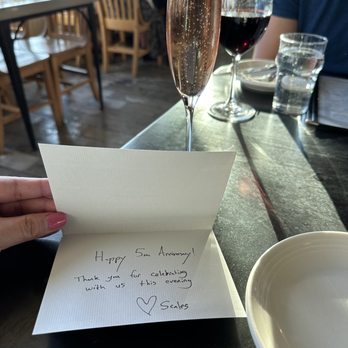 Happy 5th Anniversary!
Thank you for celebrating
with us this evening
♡ Scales